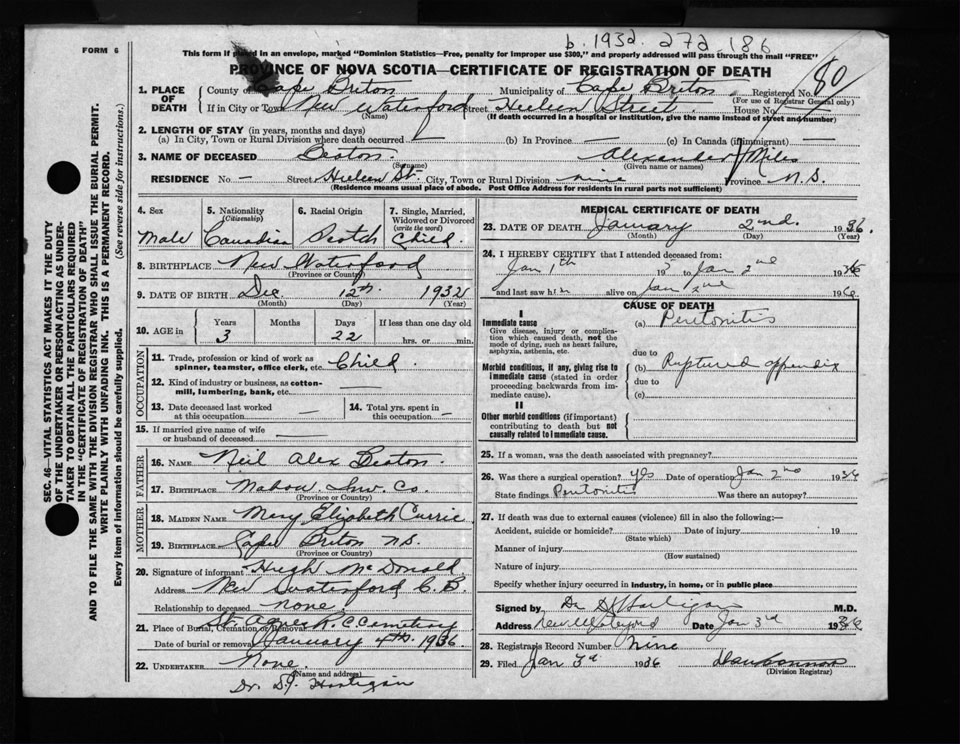 b. 1932. 272.186
FORM 6
This form if placed in an envelope, marked "Dominion Statistics—Free, penalty for improper use $300," and properly addressed will pass through the mail "FREE"
PROVINCE OF NOVA SCOTIA—CERTIFICATE OF REGISTRATION OF DEATH
80
1. PLACE OF DEATH
County of Cape Briton Municipality of Cape Briton Registered No.
(For use of Registrar General only)
If in City or Town New Waterford Street Street House No.
(Name) (If death occurred in a hospital or institution, give the name instead of street and number)
2. LENGTH OF STAY (in years, months and days)
(a) In City, Town or Rural Division where death occurred — (b) In Province — (c) In Canada (if immigrant) —
3. NAME OF DECEASED Beaton. Alexander Miles
(Surname) (Given name or names)
RESIDENCE No — Street St. City, Town or Rural Division nine Province N.S.
(Residence means usual place of abode. Post Office Address for residents in rural parts not sufficient)
4. Sex Male
5. Nationality (Citizenship) Canadian
6. Racial Origin Scotch
7. Single, Married, Widowed or Divorced (write the word) Child.
8. BIRTHPLACE New Waterford
(Province or Country)
9. DATE OF BIRTH Dec. 12th. 1932
(Month) (Day) (Year)
10. AGE in Years 3 Months Days 22 If less than one day old hrs. or min.
OCCUPATION
11. Trade, profession or kind of work as spinner, teamster, office clerk, etc. Child.
12. Kind of industry or business, as cotton-mill, lumbering, bank, etc. —
13. Date deceased last worked at this occupation —
14. Total yrs. spent in this occupation —
15. If married give name of wife or husband of deceased —
FATHER
16. NAME Neil Alex Beaton.
17. BIRTHPLACE Mabou. Inv. Co.
(Province or Country)
MOTHER
18. MAIDEN NAME Mary Elizabeth Currie
19. BIRTHPLACE Cape Briton N.S.
(Province or Country)
20. Signature of informant Hugh McDonald
Address New Waterford C.B.
Relationship to deceased none
21. Place of Burial, Cremation or Removal St. Agnes R.C. Cemetery
Date of burial or removal January 4th. 1936
22. UNDERTAKER None.
(Name and address)
Dr. D.J. Hartigan
MEDICAL CERTIFICATE OF DEATH
23. DATE OF DEATH January 2nd. 1936.
(Month) (Day) (Year)
24. I HEREBY CERTIFY that I attended deceased from:
Jan 1th 19 to Jan 2nd 1936
and last saw him alive on Jan 2nd 1936
CAUSE OF DEATH
I
Immediate cause
Give disease, injury or complication which caused death, not the mode of dying, such as heart failure, asphyxia, asthenia, etc.
(a) Peritonitis
due to
Morbid conditions, if any, giving rise to immediate cause (stated in order proceeding backwards from immediate cause).
(b) Ruptured appendix
due to
(c)
II
Other morbid conditions (if important) contributing to death but not causally related to immediate cause.
25. If a woman, was the death associated with pregnancy?
26. Was there a surgical operation? yes Date of operation Jan 2nd 1936
State findings Peritonitis Was there an autopsy?
27. If death was due to external causes (violence) fill in also the following:—
Accident, suicide or homicide? Date of injury 19
(State which)
Manner of injury
(How sustained)
Nature of injury
Specify whether injury occurred in industry, in home, or in public place
Signed by Dr D J Hartigan M.D.
Address New Waterford Date Jan 3rd 1936
28. Registrar's Record Number Nine
29. Filed Jan 3rd 1936
(Division Registrar)
SEC. 46—VITAL STATISTICS ACT MAKES IT THE DUTY
OF THE UNDERTAKER OR PERSON ACTING AS UNDER-
TAKER TO OBTAIN ALL THE PARTICULARS REQUIRED
IN THE "CERTIFICATE OF REGISTRATION OF DEATH"
AND TO FILE THE SAME WITH THE DIVISION REGISTRAR WHO SHALL ISSUE THE BURIAL PERMIT.
WRITE PLAINLY WITH UNFADING INK. THIS IS A PERMANENT RECORD.
Every item of information should be carefully supplied. (See reverse side for instructions.)